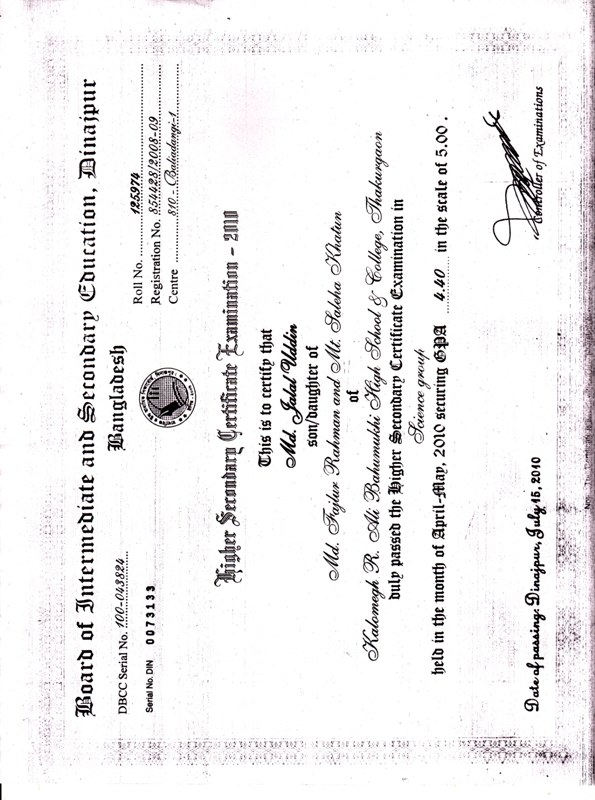 Board of Intermediate and Secondary Education, Dinajpur
Bangladesh
DBCC Serial No. 100-043824
Serial No. DIN 0073133
Roll No. 125974
Registration No. 854428/2008-09
Centre 810 - Baliadangi-1
Higher Secondary Certificate Examination - 2010
This is to certify that
Md. Jalal Uddin
son/daughter of
Md. Fojlur Rahman and Mt. Saleha Khatun
of
Kalomegh R. Ali Bahumukhi High School & College, Thakurgaon
duly passed the Higher Secondary Certificate Examination in
Science group
held in the month of April-May, 2010 securing GPA 4.40 in the scale of 5.00 .
Date of passing: Dinajpur, July 15, 2010
Controller of Examinations